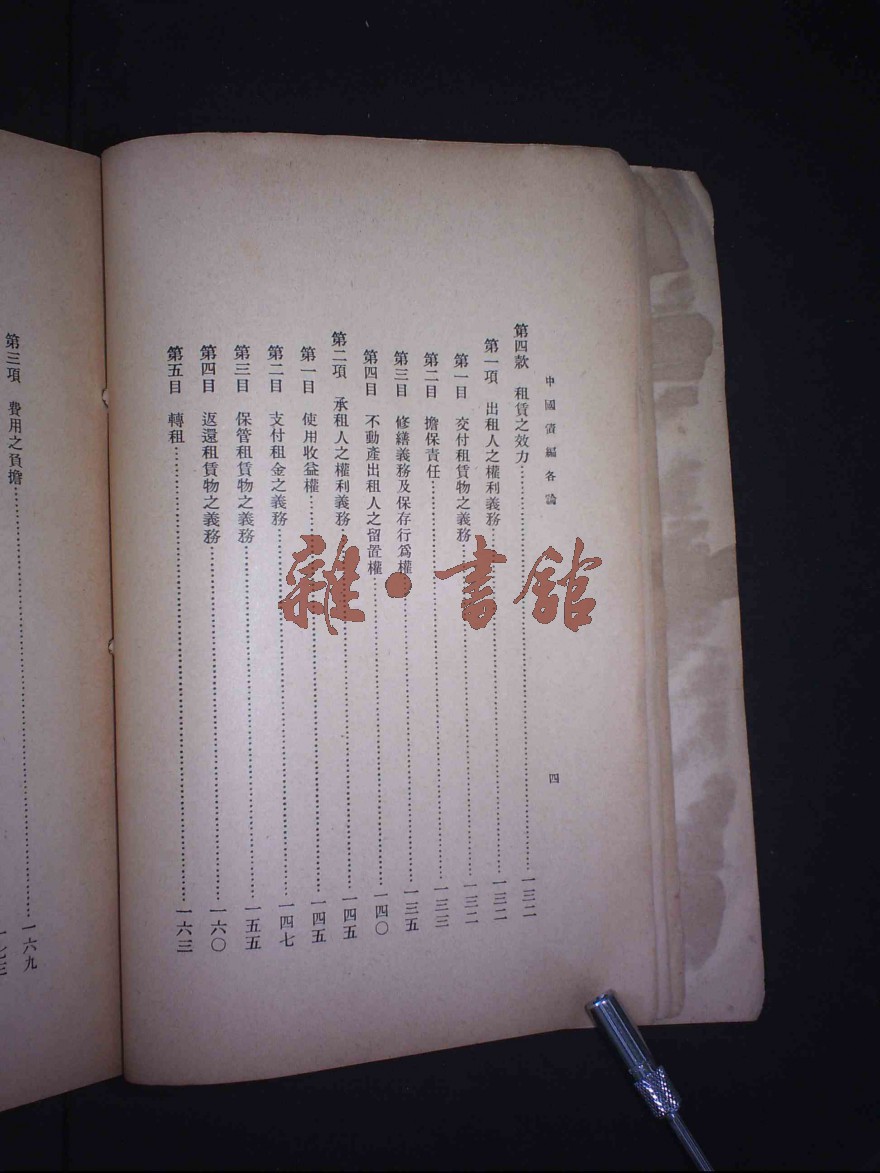 中國債編各論
四
第四款　租賃之效力……一三二
第一項　出租人之權利義務……一三二
第一目　交付租賃物之義務……一三二
第二目　擔保責任……一三三
第三目　修繕義務及保存行爲權……一三五
第四目　不動產出租人之留置權……一四〇
第二項　承租人之權利義務……一四五
第一目　使用收益權……一四五
第二目　支付租金之義務……一四七
第三目　保管租賃物之義務……一五五
第四目　返還租賃物之義務……一六〇
第五目　轉租……一六三
第三項　費用之負擔……一六九
雜·書館